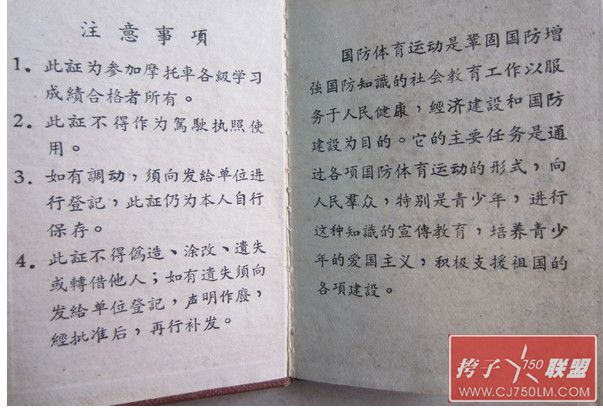 注意事項
1. 此証为参加摩托車各級学习
成績合格者所有。
2. 此証不得作为駕駛执照使
用。
3. 如有調动，須向发給单位进
行登記，此証仍为本人自行
保存。
4. 此証不得僞造、涂改、遺失
或轉借他人；如有遺失須向
发給单位登記，声明作廢，
經批准后，再行补发。
国防体育运动是鞏固国防增
強国防知識的社会教育工作以服
务于人民健康，經济建設和国防
建設为目的。它的主要任务是通
过各項国防体育运动的形式，向
人民羣众，特別是青少年，进行
这种知識的宣傳教育，培养青少
年的爱国主义，积极支援祖国的
各項建設。
挎子750联盟
WWW.CJ750LM.COM